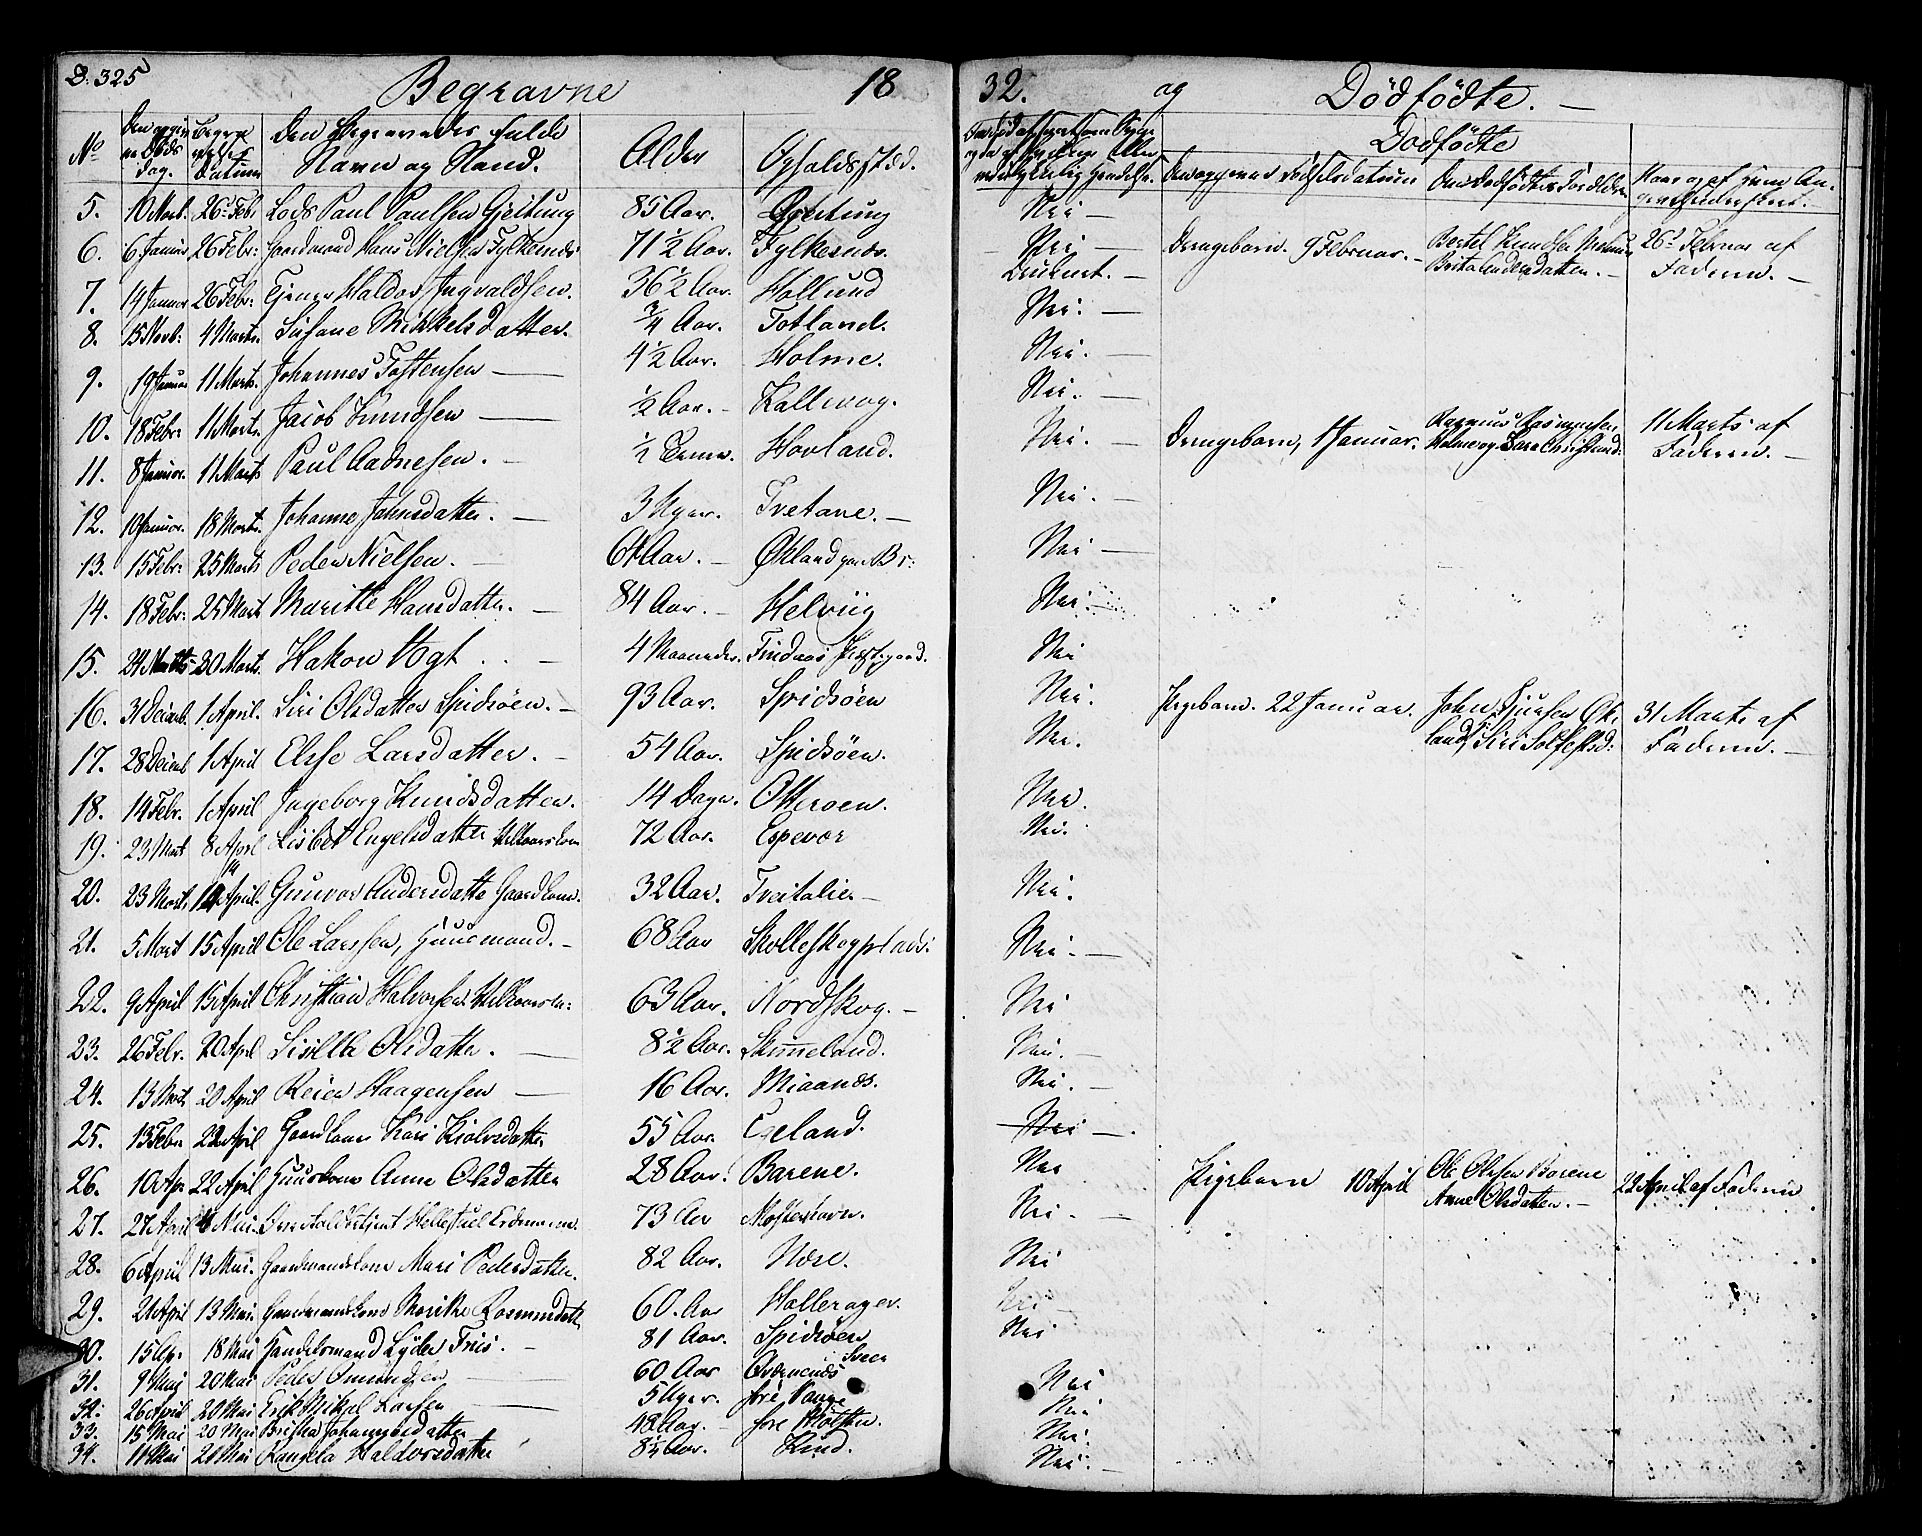 D: 325 Begravne 18 32. og Dödfödte. —
Dodfödte
No Den opgivne Döds Dag. Begravelses Datum Den Begravedes fulde Navn og Stand. Alder Opholdssted.
Den opgivne Födselsdatum Den Dödfödtes Forældre
5. 10 Novb: 26 Febr Lods Paul Paulsen Gjeitung 85 Aar. Gjeitung Nei —
6. 6 Januar 26 Febr: Gaardmand Hans Nielsen Fylkesnæs 71 1/2 Aar. Fylkesnæs. Nei — Drengebarn. 9 Februar. — Bertel Knudsen 26 Februar af
Brita Andersdatter. — Faderen. —
7. 14 Januar 26 Febr: Tjener Haldor Ingvaldsen. 36 1/2 Aar. Hollund Druknet. —
8. 15 Novb: 4 Marts. Susane Mikkelsdatter. 3/4 Aar. Totland. Nei. —
9. 19 Januar 11 Marts. Johannes Tostensen — 4 1/2 Aar. Holme. Nei. —
10. 18 Febr: 11 Marts. Jacob Knudsen — 1/2 Aar. — Kallevaag. Nei. —
11. 8 Januar. 11 Marts Paul Aadnesen. — Hovland. Nei. — Drengebarn, 1 Januar. Rasmus Rasmussen 11 Marts af
Faderen. —
12. 10 Januar. 18 Marts. Johanne Johnsdatter. — 3 Uger. Tvetane. — Nei. —
13. 15 Febr: 25 Marts Peder Nielsen. — 64 Aar. — Økland paa Br: Nei —
14. 18 Febr: 25 Mart Maritte Hansdatter. — 84 Aar. — Helviig Nei. —
15. 24 Marts 30 Marts. Hakon Vogt . . — 4 Maaneder. Findaas Præstegaard. Nei
16. 31 Decemb. 1 April. Siri Olsdatter Spidsöen. — 93 Aar. Spidsöen Nei. Pigebarn. 22 Januar. John Sjursen Øk- 31 Marts af
land, Siri Faderen. —
17. 28 Decemb 1 April Else Larsdatter. — 54 Aar. Spidsöen. Nei.
18. 14 Febr. 1 April Ingeborg Knudsdatter. 14 Dage. Otteroen. Nei.
19. 23 Mart 8 April Lisbet Engelsdatter 72 Aar. Espevær Nei.
20. 23 Marts 14 April. Gunvor Andersdatter Gaardkone. 32 Aar. Tveitalie. — Nei.
21. 5 Mart 15 April Ole Larssen, Huusmand. — 68 Aar Nei. —
22. 9 April 15 April Christian Halvorsen 63 Aar. Nordskog. — Nei
23. 26 Febr. 20 April Sisilla Olsdatter. — 8 1/2 Aar. Skimmeland. Nei. —
24. 13 Mart 20 April Reier Haagensen — 16 Aar. Miaanæs. Nei. —
25. 13 Febr 22 April Gaardkone Kari 55 Aar. Egeland. Nei —
26. 10 Ap 22 April Huuskone Anne Olsdatter 28 Aar. Barene. Nei Pigebarn 10 April Ole Olsen Barene 22 April af Faderen
Anne Olsdatter. —
27. 27 April 6 Mai. 73 Aar Mosterhavn. Nei. —
28. 6 April 13 Mai. Gaardmandskone Mari Pedersdatter. 82 Aar. Næse. Nei
29. 21 April 13 Mai. Gaardmandskone Marithe Rasmusdatt 60. Aar Hallerager. Nei —
30. 15 Ap. 18 Mai Handelsmand Lyder Friis. — 81 Aar. Spidsöen Nei
31. 9 Mai 20 Mai Peder Omundsen — 60 Aar Nei
32. 26 April 20 Mai Erik Mikal Larsen — 5 Uger. Nei
33. 15 Mai 20 Mai Johannesdatter 48 Aar. — Nei.
34. 11 Mai 20 Mai Rangela Haldorsdatter 8 1/2 Aar. Nei. —